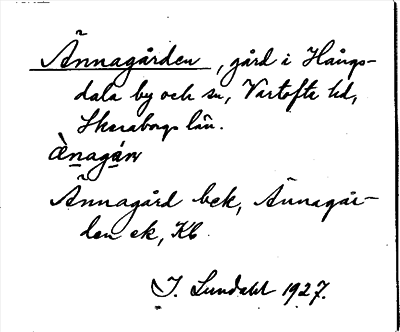 Ännagården, gård i Hångs-
dala by och sn, Vartofta hd,
Skaraborgs län.
ànagán
Ännagård bek, Ännagår-
den ek, Kb
I. Lundahl 1927.